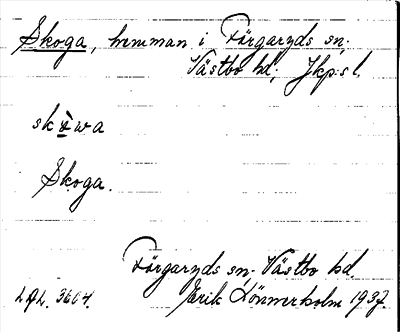 Skoga, hemman i Färgaryds sn;
Västbo hd, Jkp:s l.
skòwa
Skoga.
Färgaryds sn; Västbo hd.
LAL. 3604. Erik Lönnerholm 1937.